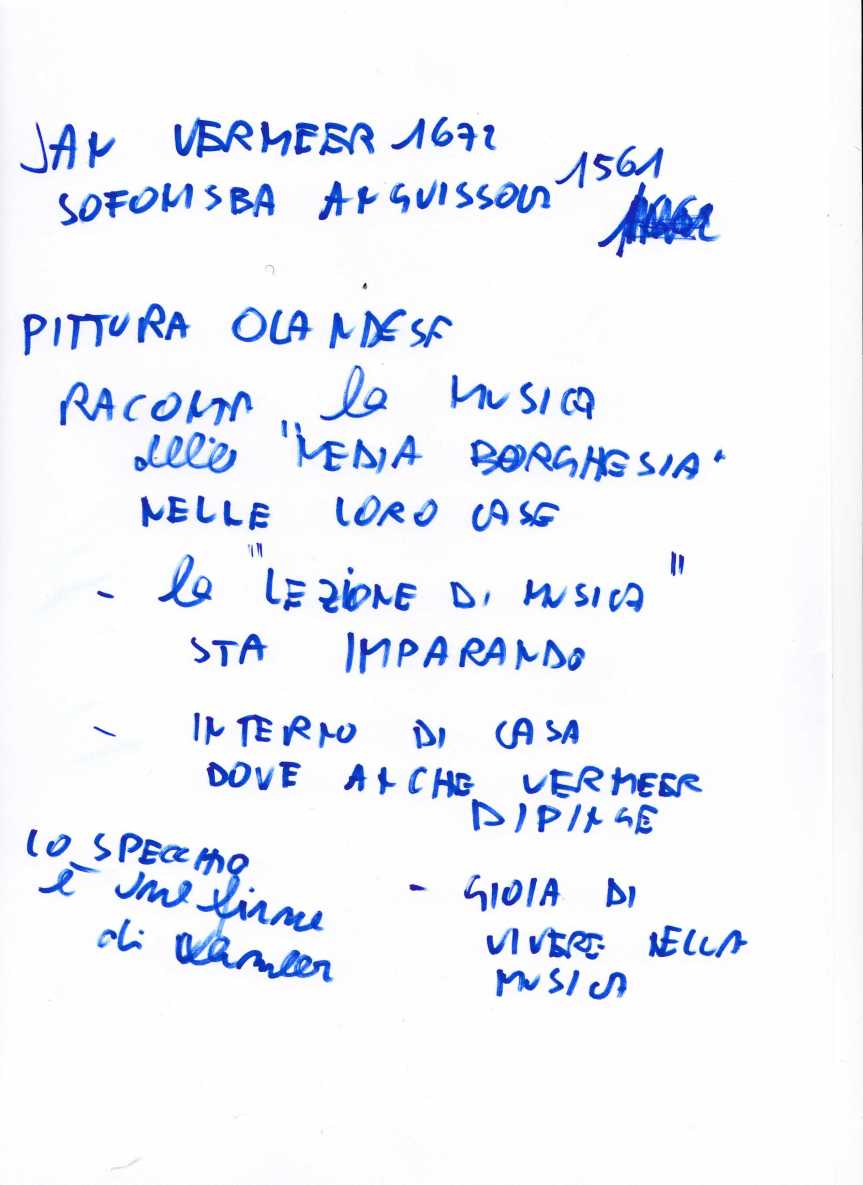 JAN VERMEER 1672
SOFONISBA ANGUISSOLA 1561
PITTURA OLANDESE
RACONTA la MUSICA
della "MEDIA BORGHESIA"
NELLE LORO CASE
- la "LEZIONE DI MUSICA"
STA IMPARANDO
- INTERNO DI CASA
DOVE ANCHE VERMEER
DIPINGE
LO SPECCHIO
è una firma
di Vermeer
- GIOIA DI
VIVERE NELLA
MUSICA